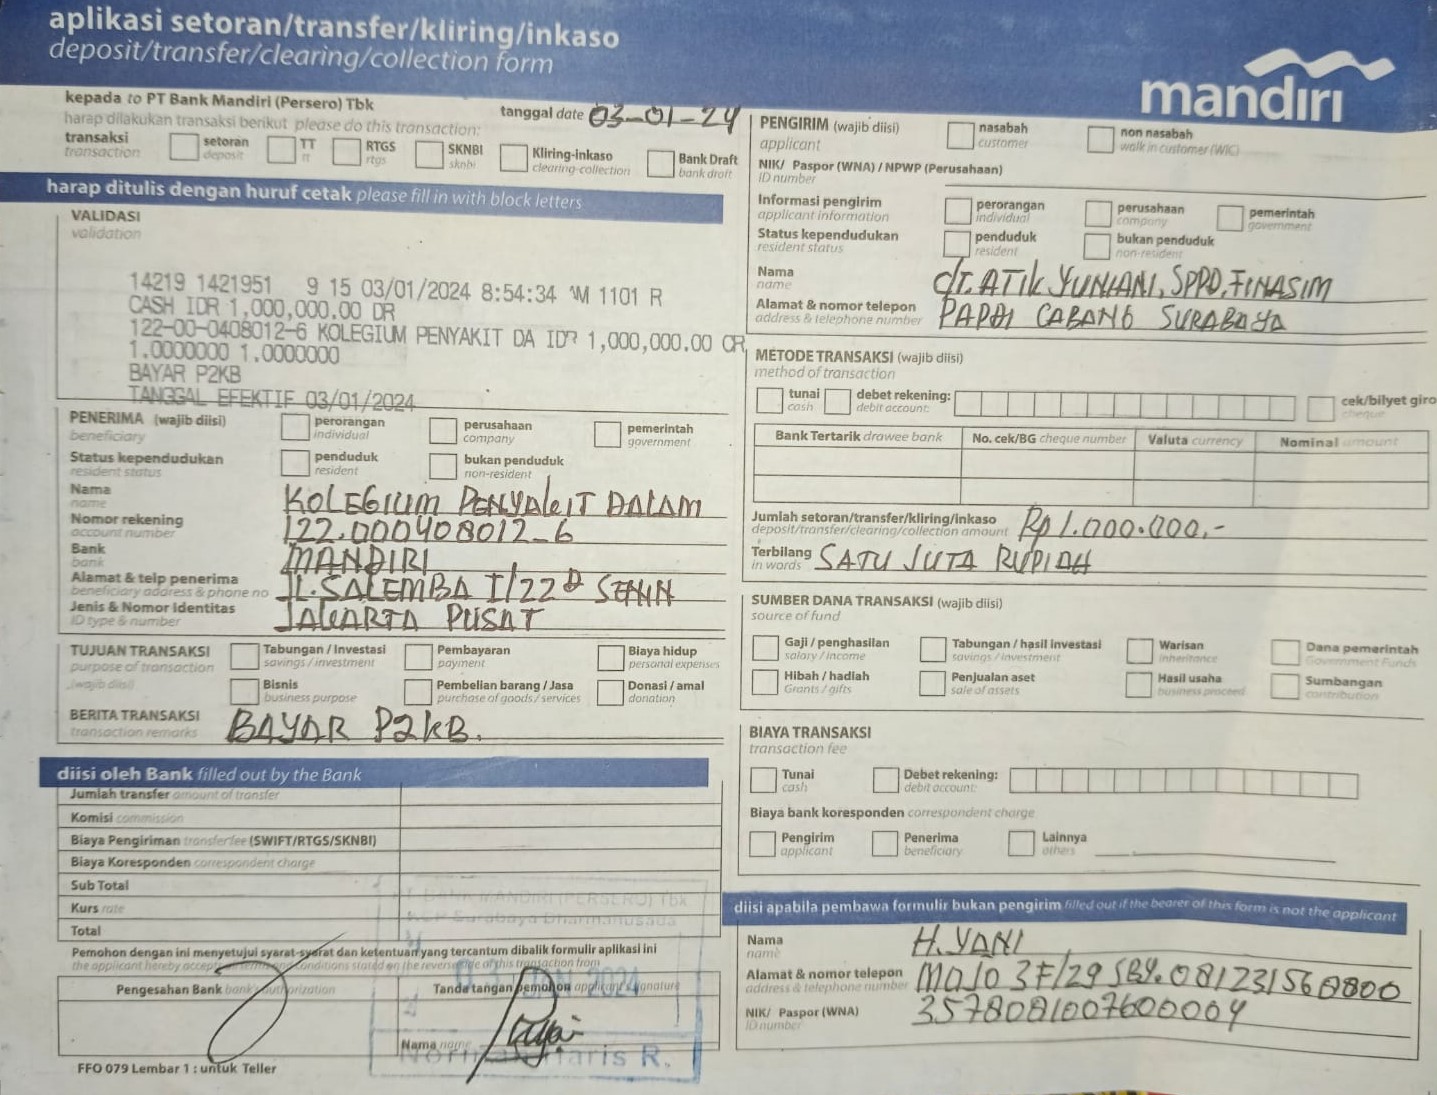 aplikasi setoran/transfer/kliring/inkaso
deposit/transfer/clearing/collection form
mandiri
kepada to PT Bank Mandiri (Persero) Tbk
tanggal date 03-01-24
harap dilakukan transaksi berikut please do this transaction:
transaksi transaction
setoran deposit
TT tt
RTGS rtgs
SKNBI sknbi
Kliring-inkaso clearing-collection
Bank Draft bank draft
harap ditulis dengan huruf cetak please fill in with block letters
VALIDASI
validation
14219 1421951 9 15 03/01/2024 8:54:34 1101 R
CASH IDR 1,000,000.00 DR
122-00-0408012-6 KOLEGIUM PENYAKIT DA IDR 1,000,000.00 CR
1.0000000 1.0000000
BAYAR P2KB
TANGGAL EFEKTIF 03/01/2024
PENERIMA (wajib diisi)
beneficiary
perorangan individual
perusahaan company
pemerintah government
Status kependudukan
resident status
penduduk resident
bukan penduduk non-resident
Nama name KOLEGIUM PENYAKIT DALAM
Nomor rekening account number 122.000408012-6
Bank bank MANDIRI
Alamat & telp penerima beneficiary address & phone no JL.SALEMBA I/22 D SENIN
Jenis & Nomor Identitas ID type & number JAKARTA PUSAT
TUJUAN TRANSAKSI
purpose of transaction
(wajib diisi)
Tabungan / Investasi savings / investment
Pembayaran payment
Biaya hidup personal expenses
Bisnis business purpose
Pembelian barang / Jasa purchase of goods / services
Donasi / amal donation
BERITA TRANSAKSI
transaction remarks
BAYAR P2KB.
diisi oleh Bank filled out by the Bank
Jumlah transfer amount of transfer
Komisi commission
Biaya Pengiriman transfer fee (SWIFT/RTGS/SKNBI)
Biaya Koresponden correspondent charge
Sub Total
Kurs rate
Total
PT BANK MANDIRI (PERSERO) Tbk
KCP Surabaya Dharmahusada
Pemohon dengan ini menyetujui syarat-syarat dan ketentuan yang tercantum dibalik formulir aplikasi ini
the applicant hereby accepts terms and conditions stated on the reverse of this transaction from
Pengesahan Bank bank's authorization
Tanda tangan pemohon applicant's signature
JAN 2024
Nama name
Haris R.
FFO 079 Lembar 1 : untuk Teller
PENGIRIM (wajib diisi)
applicant
nasabah customer
non nasabah walk in customer (WIC)
NIK/ Paspor (WNA) / NPWP (Perusahaan)
ID number
Informasi pengirim
applicant information
perorangan individual
perusahaan company
pemerintah government
Status kependudukan
resident status
penduduk resident
bukan penduduk non-resident
Nama name dr. ATIK YUNIANI, SPPD, FINASIM
Alamat & nomor telepon address & telephone number PAPDI CABANG SURABAYA
METODE TRANSAKSI (wajib diisi)
method of transaction
tunai cash
debet rekening: debit account:
cek/bilyet giro cheque
Bank Tertarik drawee bank
No. cek/BG cheque number
Valuta currency
Nominal amount
Jumlah setoran/transfer/kliring/inkaso Rp 1.000.000,-
deposit/transfer/clearing/collection amount
Terbilang in words SATU JUTA RUPIAH
SUMBER DANA TRANSAKSI (wajib diisi)
source of fund
Gaji / penghasilan salary / income
Tabungan / hasil investasi savings / investment
Warisan inheritance
Dana pemerintah Government Funds
Hibah / hadiah Grants / gifts
Penjualan aset sale of assets
Hasil usaha business proceed
Sumbangan contribution
BIAYA TRANSAKSI
transaction fee
Tunai cash
Debet rekening: debit account:
Biaya bank koresponden correspondent charge
Pengirim applicant
Penerima beneficiary
Lainnya others
diisi apabila pembawa formulir bukan pengirim filled out if the bearer of this form is not the applicant
Nama name H. YANI
Alamat & nomor telepon address & telephone number MOJO 3F/29 SBY. 081231560800
NIK/ Paspor (WNA) ID number 3578081007600004